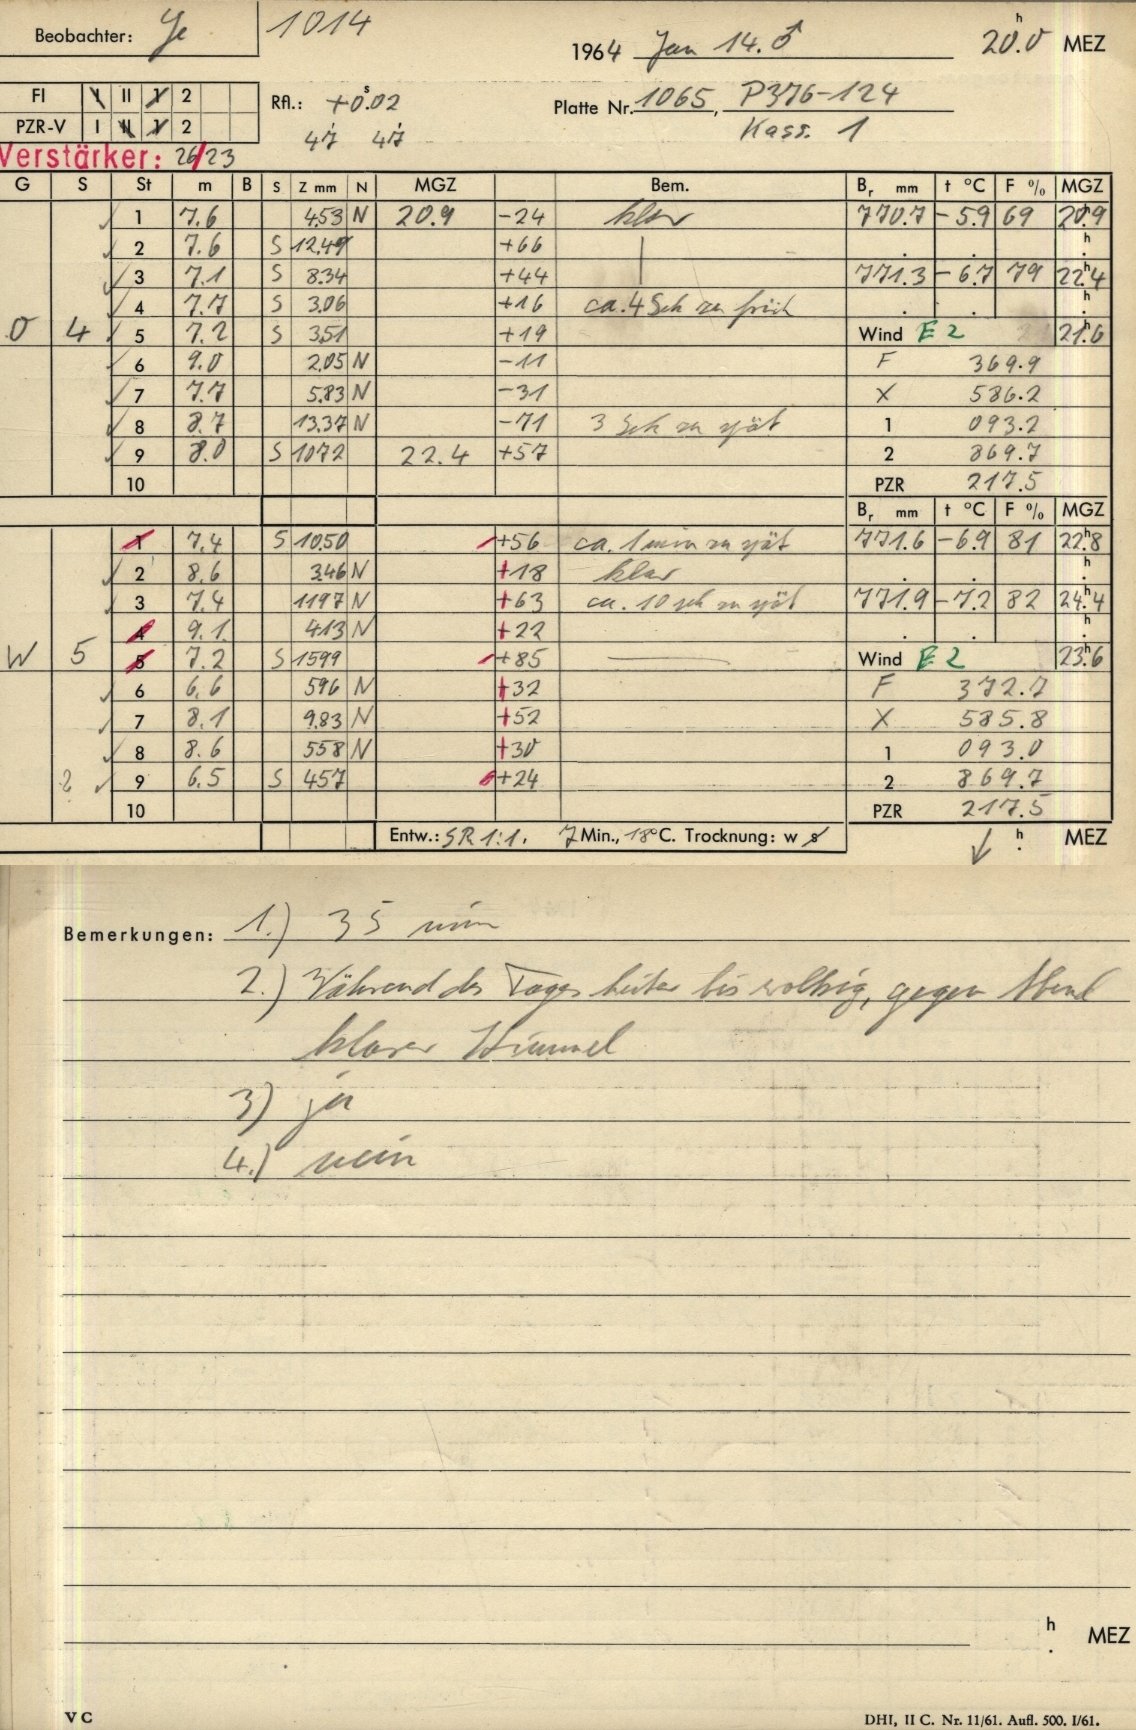 Beobachter: Ye 1014
1964 Jan 14. ♂ 20.0 h MEZ
FI I II 1 2 Rfl.: +0.02 s Platte Nr. 1065, P376-124
PZR-V I II 1 2 47 47 Kass. 1
Verstärker: 26/23
G S St m B S Z mm N MGZ Bem. Br mm t °C F % MGZ
1 7.6 453 N 20.9 -24 klar 770.7 -5.9 69 20.9
2 7.6 S 12.49 +66 | h
3 7.1 S 8.34 +44 771.3 -6.7 79 22.4 h
4 7.7 S 3.06 +16 ca. 4 Sek zu früh h
O 4 5 7.2 S 351 +19 Wind E 2 21.6 h
6 9.0 2.05 N -11 F 369.9
7 7.7 5.83 N -31 X 586.2
8 8.7 13.37 N -71 3 Sek zu spät 1 093.2
9 8.0 S 1072 22.4 +57 2 869.7
10 PZR 217.5
Br mm t °C F % MGZ
1 7.4 S 1050 +56 ca. 1 min zu spät 771.6 -6.9 81 22.8 h
2 8.6 346 N +18 klar h
3 7.4 1197 N +63 ca. 10 sek zu spät 771.9 -7.2 82 24.4 h
4 9.1 413 N +22 h
W 5 5 7.2 S 1599 +85 Wind E 2 23.6 h
6 6.6 596 N +32 F 372.7
7 8.1 9.83 N +52 X 585.8
8 8.6 558 N +30 1 093.0
2 9 6.5 S 457 +24 2 869.7
10 PZR 217.5
Entw.: SR 1:1. 7 Min., 18°C. Trocknung: w s h MEZ
Bemerkungen: 1.) 35 min
2.) Während des Tages heiter bis wolkig, gegen Abend
klarer Himmel
3) ja
4.) nein
h MEZ
VC DHI, II C. Nr. 11/61. Aufl. 500. I/61.